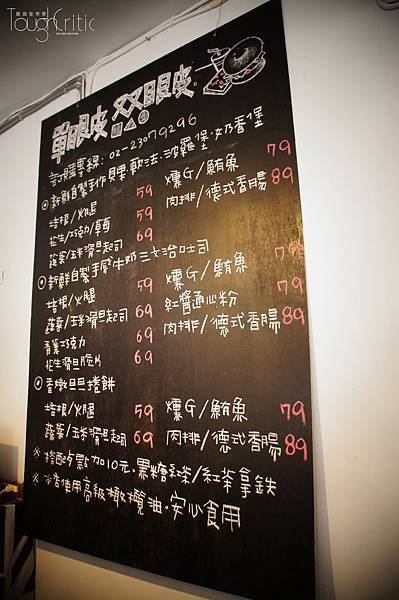 ToughCritic
單眼皮 双眼皮
訂購專線:02-23079296
◎新鮮自製手作貝果.軟法.沙雞堡.奶香堡
培根/火腿 59 燻G/鮪魚 79
花生/巧克力/草莓 59 肉排/德式香腸 89
蔬菜/玉米滑旦起司 69
◎新鮮自製手感牛奶三文治吐司
培根/火腿 59 燻G/鮪魚 79
蔬菜/玉米滑旦起司 69 紅醬通心粉 79
香蕉巧克力 69 肉排/德式香腸 89
花生滑旦脆片 69
◎香嫩旦旦捲餅
培根/火腿 59 燻G/鮪魚 79
蔬菜/玉米滑旦起司 69 肉排/德式香腸 89
※搭配餐點加10元.黑糖紅茶/紅茶拿鐵
※本店使用高級橄欖油.安心食用